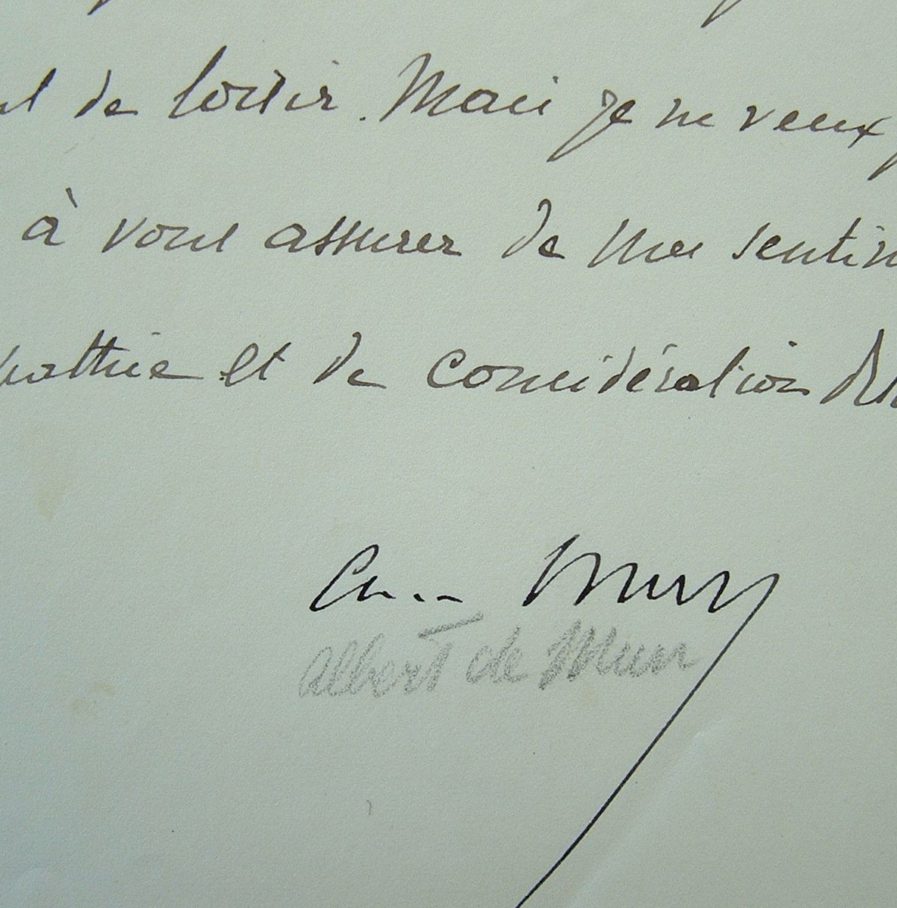 de loisir. Mais je ne veux
à vous assurer de mes sentim
pathie et de considération
a. de Mun
Albert de Mun